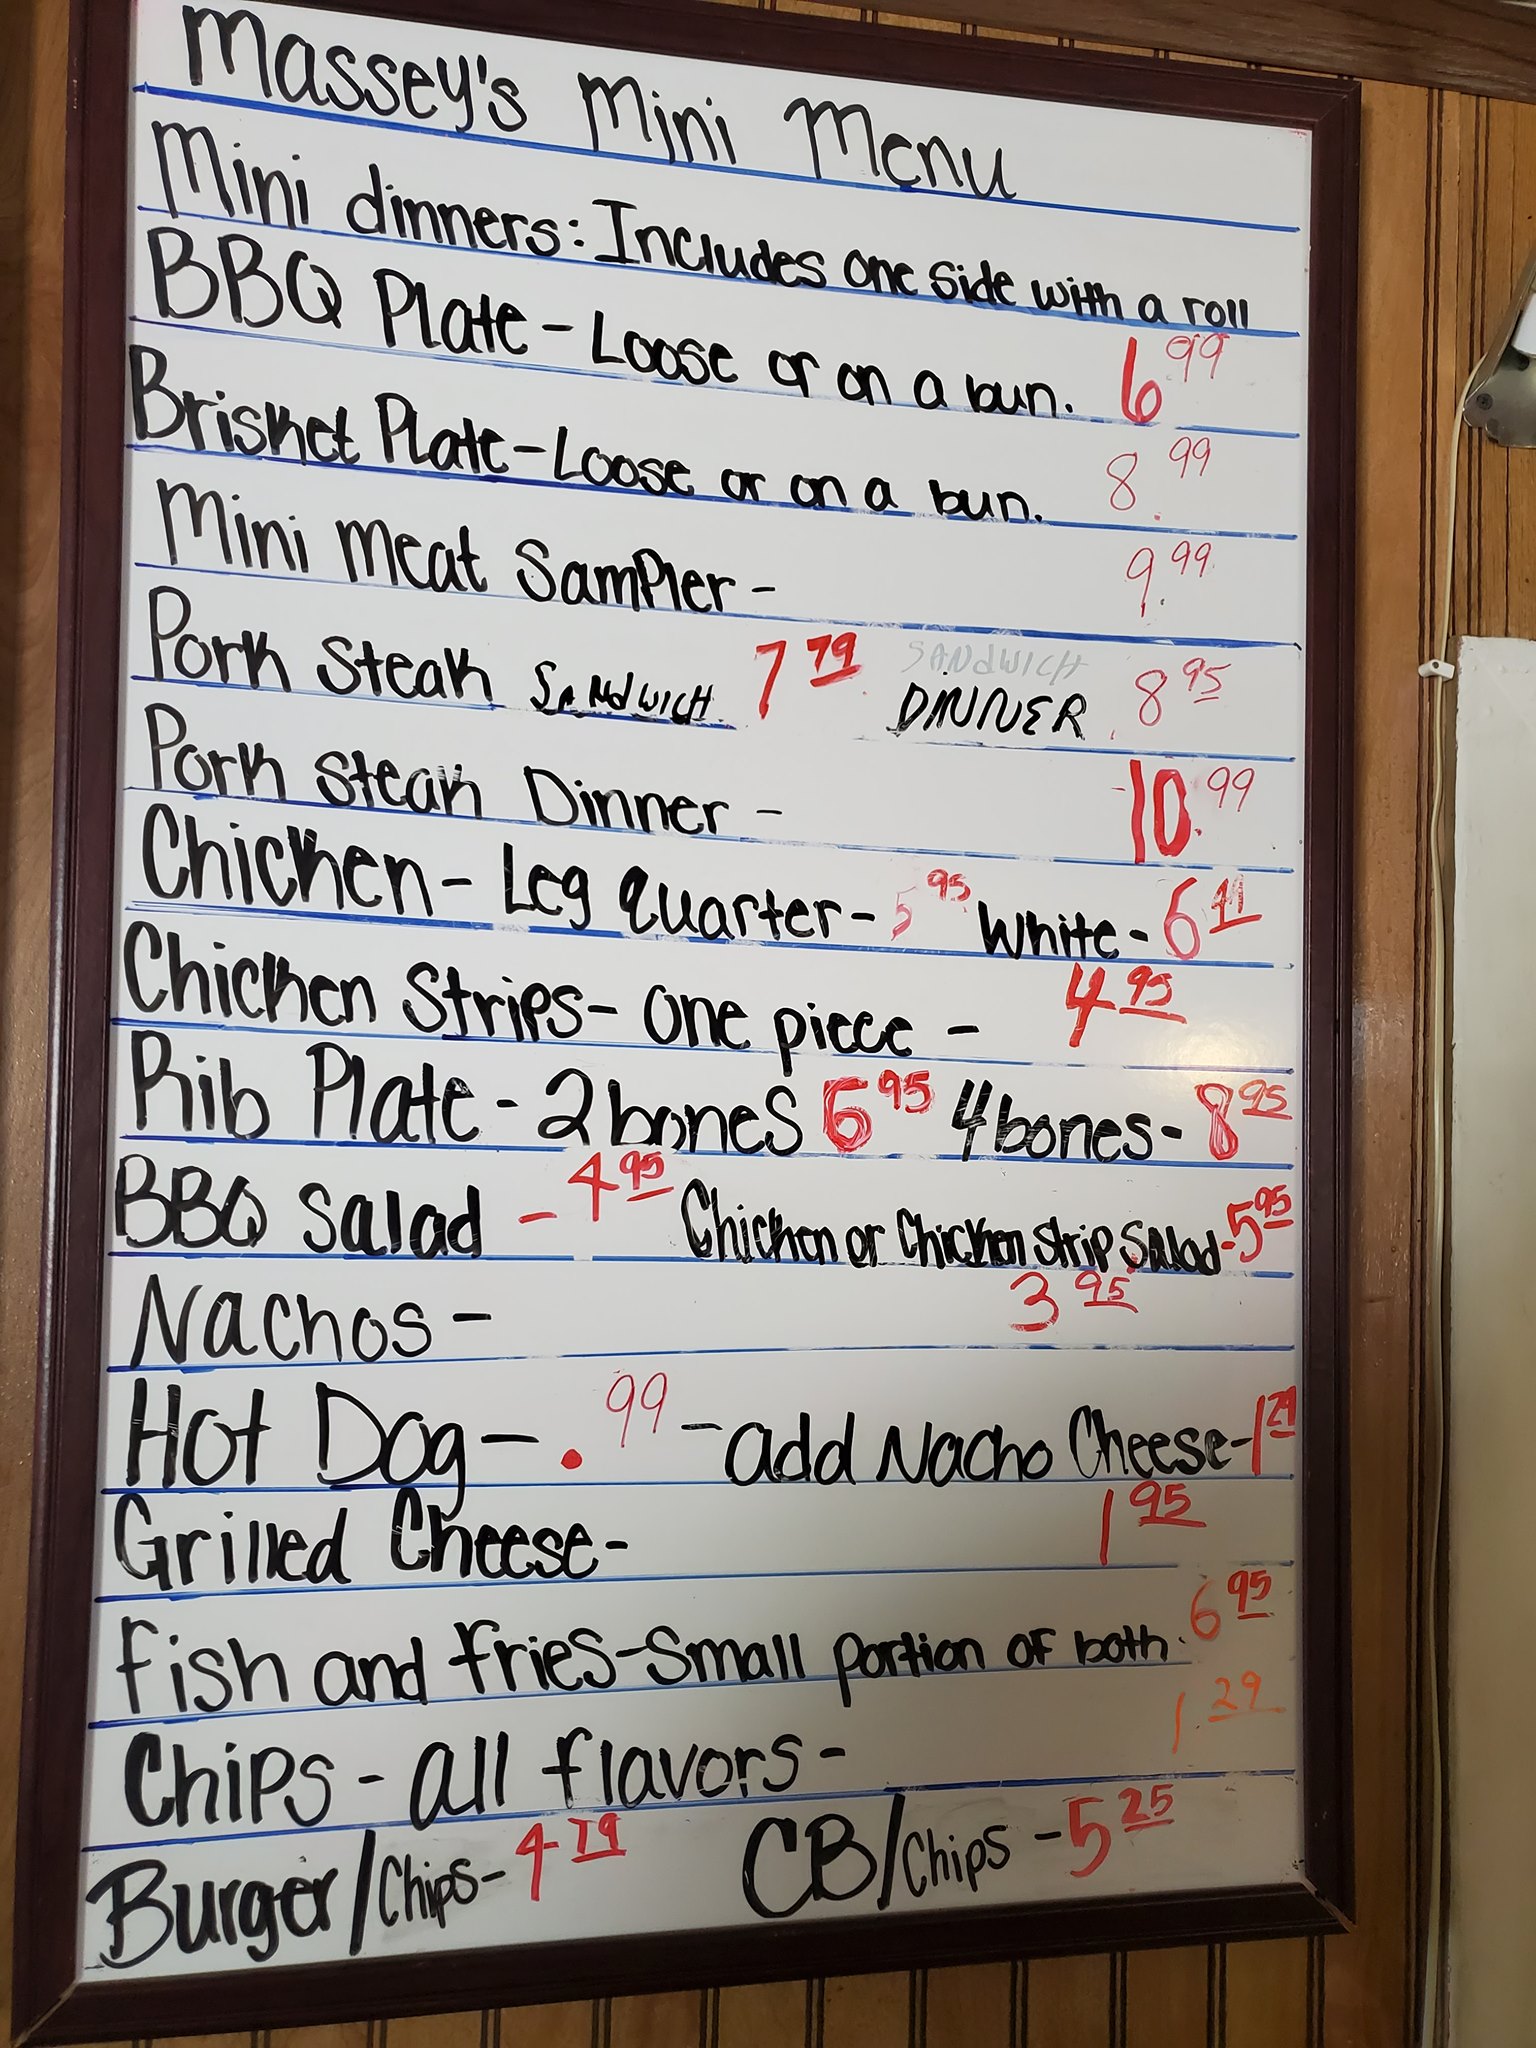 Massey's Mini Menu
Mini dinners: Includes one side with a roll
BBQ Plate - Loose or on a bun. 6.99
Brisket Plate - Loose or on a bun. 8.99
Mini meat Sampler - 9.99
Pork Steak SANdWICH 7 79 SANdWICH DINNER 8 95
Pork Steak Dinner - 10.99
Chicken - Leg quarter - 5 95 White - 6
Chicken Strips - one piece - 4 95
Rib Plate - 2 bones 6 95 4 bones - 8 95
BBQ Salad - 4 95 Chicken or Chicken Strip Salad - 5 95
Nachos - 3 95
Hot Dog - .99 - add Nacho Cheese - 1 29
Grilled Cheese - 1 95
Fish and fries - Small portion of both. 6 95
Chips - all flavors - 1.29
Burger/Chips - 4 79 CB/Chips - 5 25